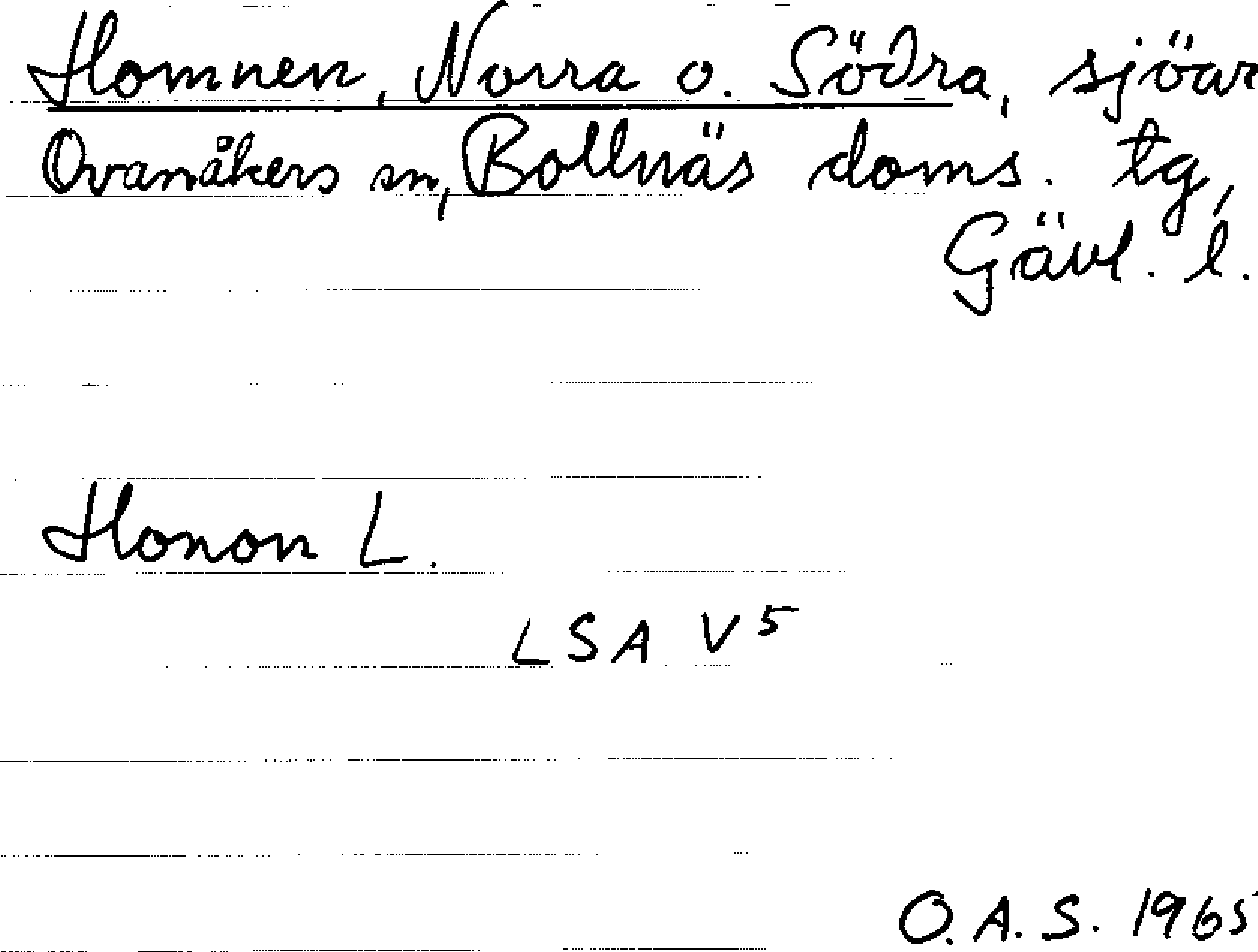 Homnen, Norra o. Södra, sjöar
Ovanåkers sn, Bollnäs doms. tg,
Gävl. l.
Honon L.
LSA V5
O.A.S. 1965